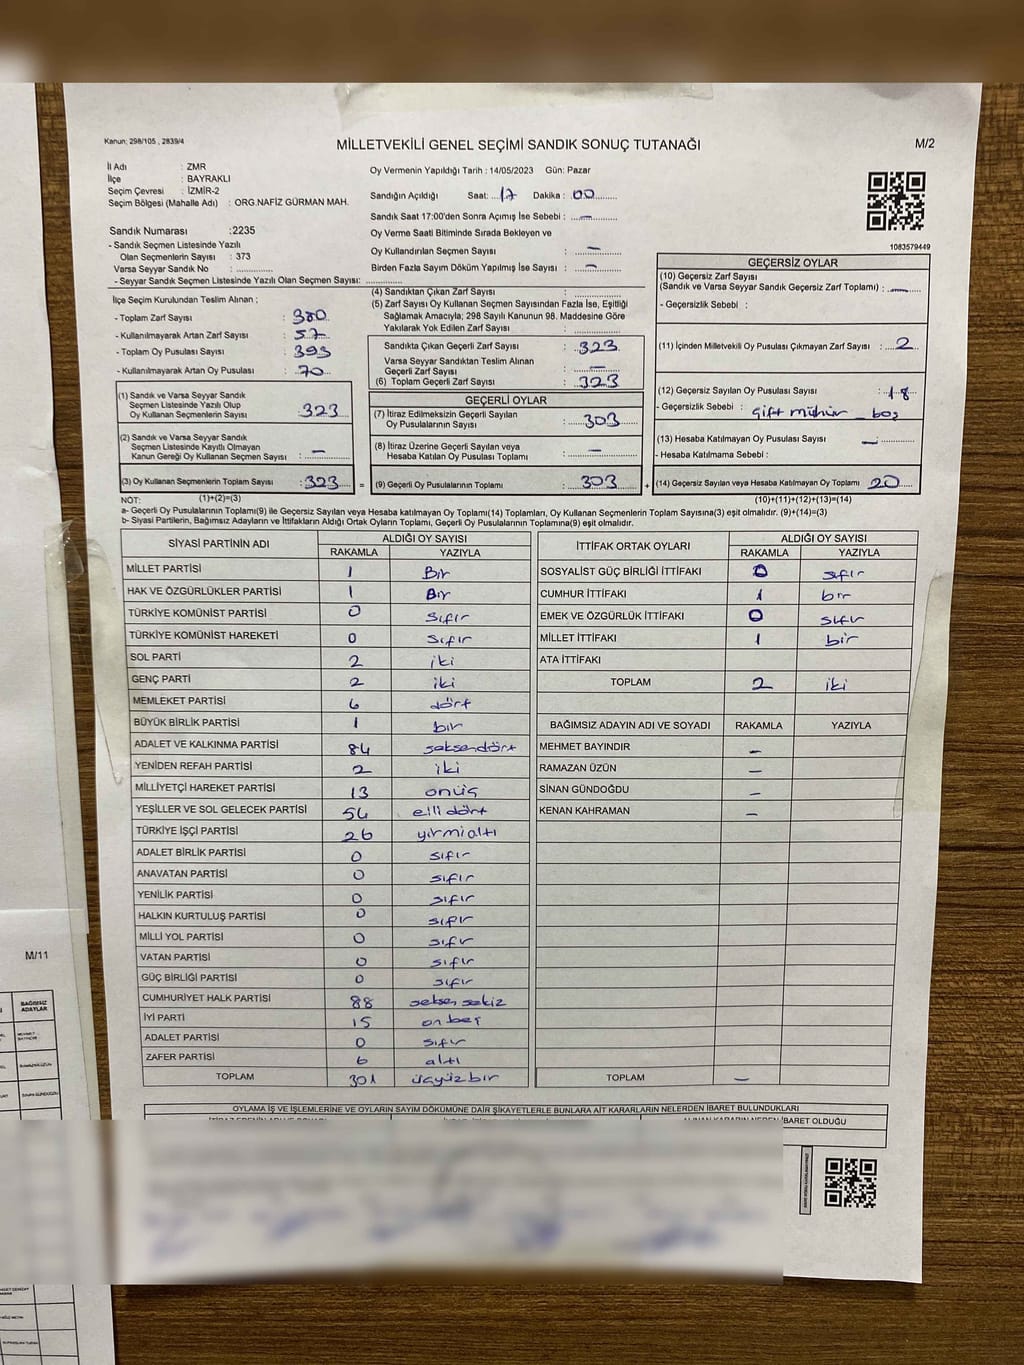 Kanun; 298/105 , 2839/4
MİLLETVEKİLİ GENEL SEÇİMİ SANDIK SONUÇ TUTANAĞI
M/2
İl Adı : ZMR
İlçe : BAYRAKLI
Seçim Çevresi : İZMİR-2
Seçim Bölgesi (Mahalle Adı) : ORG.NAFİZ GÜRMAN MAH.
Sandık Numarası :2235
- Sandık Seçmen Listesinde Yazılı
Olan Seçmenlerin Sayısı : 373
Varsa Seyyar Sandık No : ..............
- Seyyar Sandık Seçmen Listesinde Yazılı Olan Seçmen Sayısı: ..............
Oy Vermenin Yapıldığı Tarih : 14/05/2023 Gün: Pazar
Sandığın Açıldığı Saat: 17 Dakika : 00
Sandık Saat 17:00'den Sonra Açımış İse Sebebi : —
Oy Verme Saati Bitiminde Sırada Bekleyen ve
Oy Kullandırılan Seçmen Sayısı : —
Birden Fazla Sayım Döküm Yapılmış İse Sayısı : —
1083579449
İlçe Seçim Kurulundan Teslim Alınan ;
- Toplam Zarf Sayısı : 380
- Kullanılmayarak Artan Zarf Sayısı : 57
- Toplam Oy Pusulası Sayısı : 393
- Kullanılmayarak Artan Oy Pusulası : 70
(1) Sandık ve Varsa Seyyar Sandık
Seçmen Listesinde Yazılı Olup
Oy Kullanan Seçmenlerin Sayısı : 323
(2) Sandık ve Varsa Seyyar Sandık
Seçmen Listesinde Kayıtlı Olmayan
Kanun Gereği Oy Kullanan Seçmen Sayısı : —
(3) Oy Kullanan Seçmenlerin Toplam Sayısı : 323 =
(4) Sandıktan Çıkan Zarf Sayısı : ..............
(5) Zarf Sayısı Oy Kullanan Seçmen Sayısından Fazla İse, Eşitliği
Sağlamak Amacıyla; 298 Sayılı Kanunun 98. Maddesine Göre
Yakılarak Yok Edilen Zarf Sayısı : ..............
Sandıkta Çıkan Geçerli Zarf Sayısı : 323
Varsa Seyyar Sandıktan Teslim Alınan
Geçerli Zarf Sayısı : —
(6) Toplam Geçerli Zarf Sayısı : 323
GEÇERLİ OYLAR
(7) İtiraz Edilmeksizin Geçerli Sayılan
Oy Pusulalarının Sayısı : 303
(8) İtiraz Üzerine Geçerli Sayılan veya
Hesaba Katılan Oy Pusulası Toplamı : —
(9) Geçerli Oy Pusulalarının Toplamı : 303 +
GEÇERSİZ OYLAR
(10) Geçersiz Zarf Sayısı
(Sandık ve Varsa Seyyar Sandık Geçersiz Zarf Toplamı) : —
- Geçersizlik Sebebi :
(11) İçinden Milletvekili Oy Pusulası Çıkmayan Zarf Sayısı : 2
(12) Geçersiz Sayılan Oy Pusulası Sayısı : 18
- Geçersizlik Sebebi : çift mühür _ boş
(13) Hesaba Katılmayan Oy Pusulası Sayısı —
- Hesaba Katılmama Sebebi :
(14) Geçersiz Sayılan veya Hesaba Katılmayan Oy Toplamı 20
NOT: (1)+(2)=(3) (10)+(11)+(12)+(13)=(14)
a- Geçerli Oy Pusulalarının Toplamı(9) ile Geçersiz Sayılan veya Hesaba katılmayan Oy Toplamı(14) Toplamları, Oy Kullanan Seçmenlerin Toplam Sayısına(3) eşit olmalıdır. (9)+(14)=(3)
b- Siyasi Partilerin, Bağımsız Adayların ve İttifakların Aldığı Ortak Oyların Toplamı, Geçerli Oy Pusulalarının Toplamına(9) eşit olmalıdır.
SİYASİ PARTİNİN ADI ALDIĞI OY SAYISI
RAKAMLA YAZIYLA
MİLLET PARTİSİ 1 Bir
HAK VE ÖZGÜRLÜKLER PARTİSİ 1 Bir
TÜRKİYE KOMÜNİST PARTİSİ 0 sıfır
TÜRKİYE KOMÜNİST HAREKETİ 0 sıfır
SOL PARTİ 2 iki
GENÇ PARTİ 2 iki
MEMLEKET PARTİSİ 6 dört
BÜYÜK BİRLİK PARTİSİ 1 bir
ADALET VE KALKINMA PARTİSİ 84 seksendört
YENİDEN REFAH PARTİSİ 2 iki
MİLLİYETÇİ HAREKET PARTİSİ 13 onüç
YEŞİLLER VE SOL GELECEK PARTİSİ 54 elli dört
TÜRKİYE İŞÇİ PARTİSİ 26 yirmialtı
ADALET BİRLİK PARTİSİ 0 sıfır
ANAVATAN PARTİSİ 0 sıfır
YENİLİK PARTİSİ 0 sıfır
HALKIN KURTULUŞ PARTİSİ 0 sıfır
MİLLİ YOL PARTİSİ 0 sıfır
VATAN PARTİSİ 0 sıfır
GÜÇ BİRLİĞİ PARTİSİ 0 sıfır
CUMHURİYET HALK PARTİSİ 88 seksen sekiz
İYİ PARTİ 15 onbeş
ADALET PARTİSİ 0 sıfır
ZAFER PARTİSİ 6 altı
TOPLAM 301 üçyüzbir
İTTİFAK ORTAK OYLARI ALDIĞI OY SAYISI
RAKAMLA YAZIYLA
SOSYALİST GÜÇ BİRLİĞİ İTTİFAKI 0 sıfır
CUMHUR İTTİFAKI 1 bir
EMEK VE ÖZGÜRLÜK İTTİFAKI 0 sıfır
MİLLET İTTİFAKI 1 bir
ATA İTTİFAKI
TOPLAM 2 iki
BAĞIMSIZ ADAYIN ADI VE SOYADI RAKAMLA YAZIYLA
MEHMET BAYINDIR —
RAMAZAN ÜZÜN —
SİNAN GÜNDOĞDU —
KENAN KAHRAMAN —
TOPLAM —
OYLAMA İŞ VE İŞLEMLERİNE VE OYLARIN SAYIM DÖKÜMÜNE DAİR ŞİKAYETLERLE BUNLARA AİT KARARLARIN NELERDEN İBARET BULUNDUKLARI
ALINAN KARARIN NEDEN İBARET OLDUĞU
M/11
BAĞIMSIZ
ADAYLAR